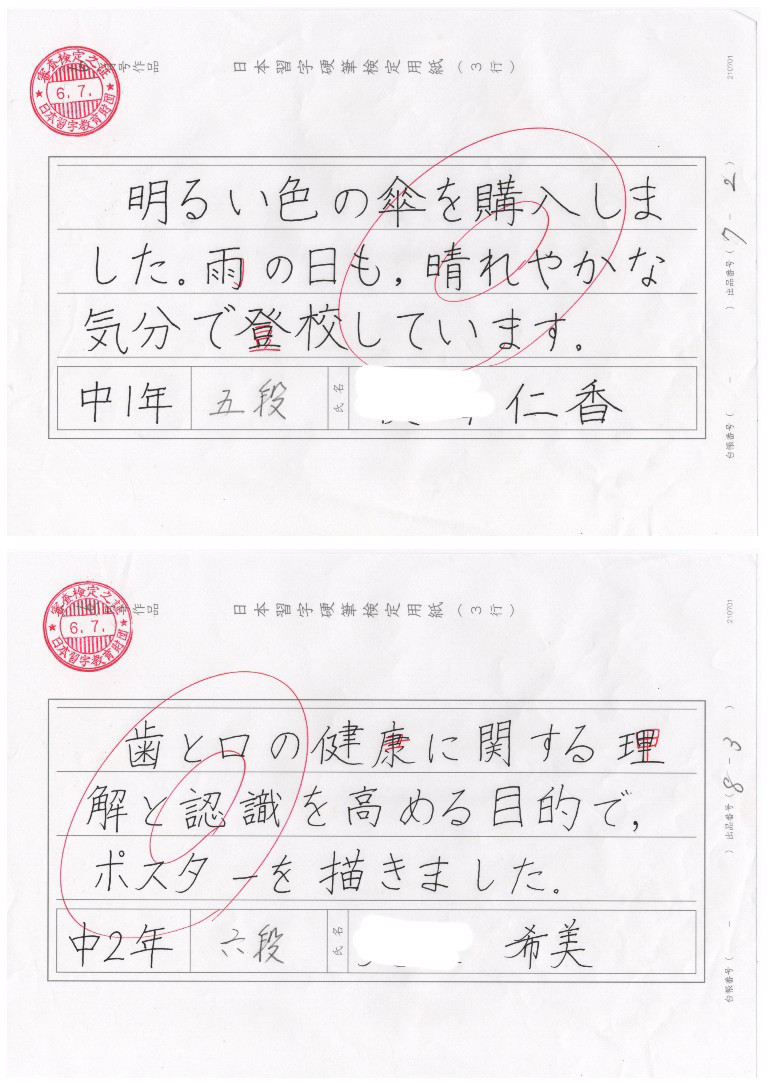 硬筆作品
日本習字硬筆検定用紙（３行）
210701
審査検定之証
6.7.
日本習字教育財団
明るい色の傘を購入しま
した。雨の日も,晴れやかな
気分で登校しています。
中1年 五段 氏名 仁香
出品番号（ 7-2 ）
台帳番号（ - ）
日本習字硬筆検定用紙（３行）
210701
審査検定之証
6.7.
日本習字教育財団
歯と口の健康に関する理
解と認識を高める目的で,
ポスターを描きました。
中2年 六段 氏名 希美
出品番号（ 8-3 ）
台帳番号（ - ）